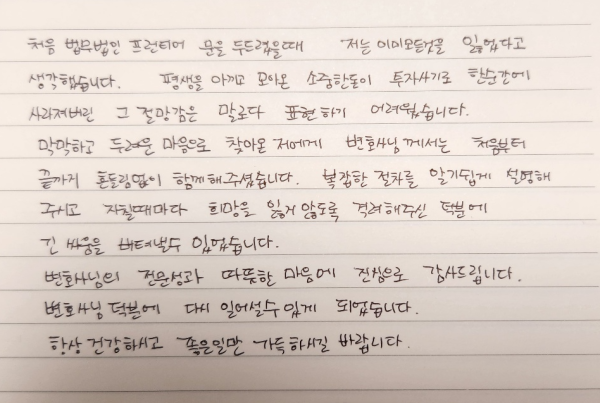 처음 법무법인 프런티어 문을 두드렸을때 저는 이미모든것을 잃었다고
생각했습니다. 평생을 아끼고 모아온 소중한돈이 투자사기로 한순간에
사라져버린 그 절망감은 말로다 표현하기 어려웠습니다.
막막하고 두려운 마음으로 찾아온 저에게 변호사님께서는 처음부터
끝까지 흔들림없이 함께해주셨습니다. 복잡한 절차를 알기쉽게 설명해
주시고 지칠때마다 희망을 잃지 않도록 격려해주신 덕분에
긴 싸움을 버텨낼수 있었습니다.
변호사님의 전문성과 따뜻한 마음에 진심으로 감사드립니다.
변호사님 덕분에 다시 일어설수있게 되었습니다.
항상 건강하시고 좋은일만 가득하시길 바랍니다.